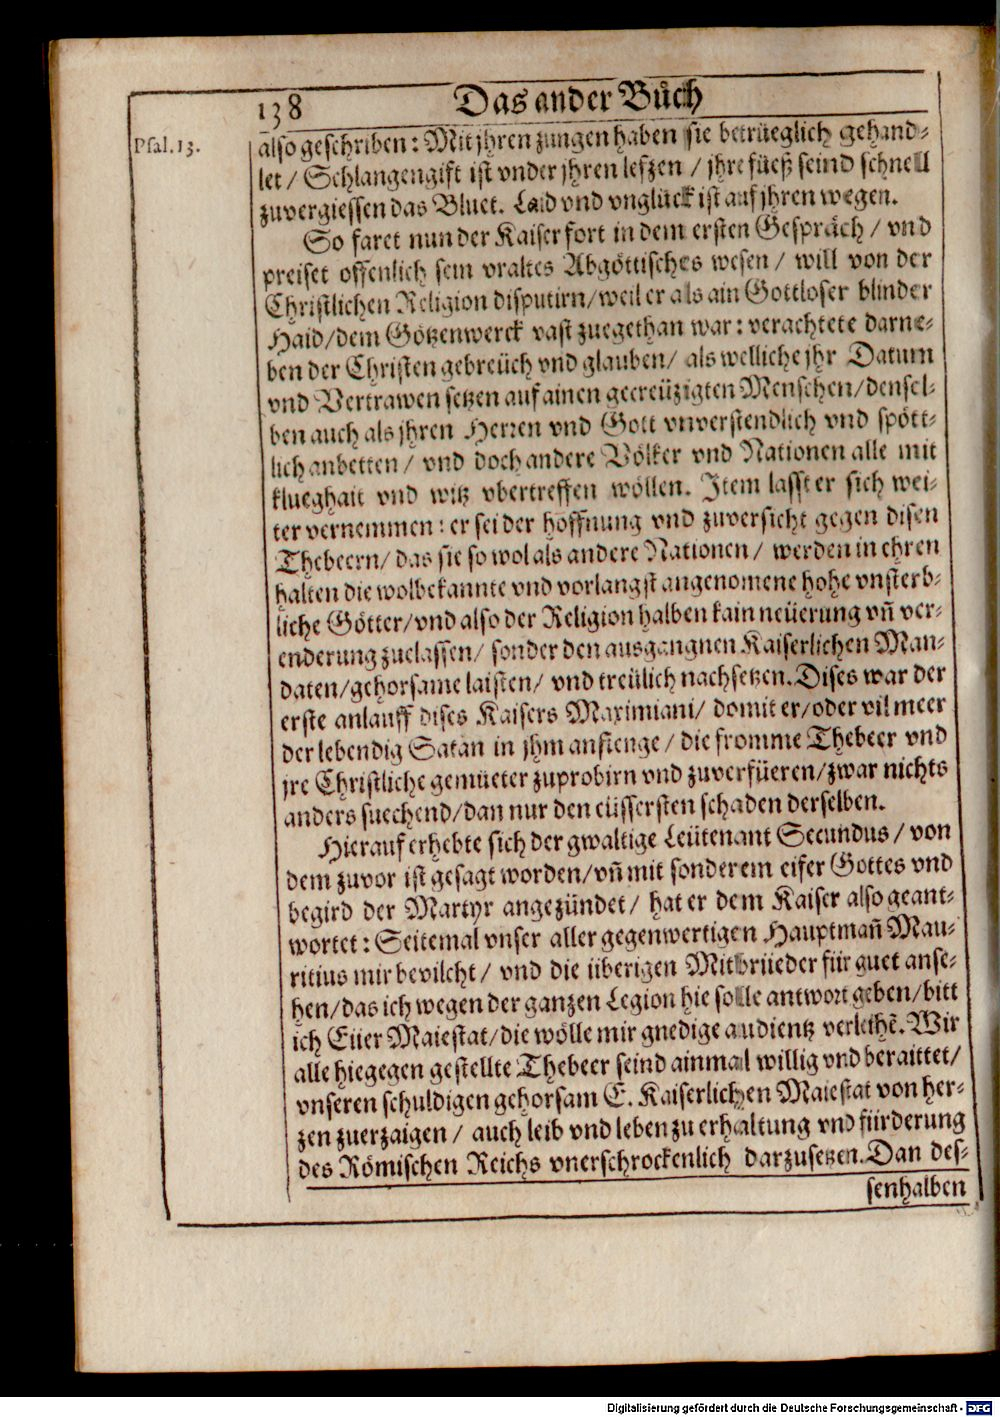 138 Das ander Buͤch
Psal. 13.
also geschriben: Mit jhren zungen haben sie betrüeglich gehand⸗
let / Schlangengift ist vnder jhren lefzen / jhre füeß seind schnell
zuvergiessen das Bluet. Laid vnd vnglück ist auf jhren wegen.
So faret nun der Kaiser fort in dem ersten Gespräch / vnd
preiset offenlich sein vraltes Abgöttisches wesen / will von der
Christlichen Religion disputirn / weil er als ain Gottloser blinder
Haid / dem Götzenwerck vast zuegethan war: verachtete darne⸗
ben der Christen gebreüch vnd glauben / als welliche jhr Datum
vnd Vertrawen setzen auf ainen gecreüzigten Menschen / densel⸗
ben auch als jhren Herren vnd Gott vnverstendlich vnd spött⸗
lich anbetten / vnd doch andere Völker vnd Nationen alle mit
klueghait vnd witz vbertreffen wöllen. Item lasst er sich wei⸗
ter vernemmen: er sei der hoffnung vnd zuversicht gegen disen
Thebeern / das sie so wol als andere Nationen / werden in ehren
halten die wolbekannte vnd vorlangst angenomene hohe vnsterb⸗
liche Götter / vnd also der Religion halben kain neüerung vñ ver⸗
enderung zuelassen / sonder den ausgangnen Kaiserlichen Man⸗
daten / gehorsame laisten / vnd treülich nachsetzen. Dises war der
erste anlauff dises Kaisers Maximiani / domit er / oder vil meer
der lebendig Satan in jhm anfienge / die fromme Thebeer vnd
jre Christliche gemüeter zuprobirn vnd zuverfüeren / zwar nichts
anders suechend / dan nur den eüssersten schaden derselben.
Hierauf erhebte sich der gwaltige Leütenant Secundus / von
dem zuvor ist gesagt worden / vñ mit sonderem eifer Gottes vnd
begird der Martyr angezündet / hat er dem Kaiser also geant⸗
wortet: Seitemal vnser aller gegenwertigen Hauptmañ Mau⸗
ritius mir bevilcht / vnd die überigen Mitbrüeder für guet anse⸗
hen / das ich wegen der ganzen Legion hie solle antwort geben / bitt
ich Eüer Maiestat / die wölle mir gnedige audientz verleihẽ. Wir
alle hiegegen gestellte Thebeer seind ainmal willig vnd beraittet /
vnseren schuldigen gehorsam E. Kaiserlichen Maiestat von her⸗
zen zuerzaigen / auch leib vnd leben zu erhaltung vnd fürderung
des Römischen Reichs vnerschrockenlich darzusetzen. Dan des⸗
senhalben
Digitalisierung gefördert durch die Deutsche Forschungsgemeinschaft - DFG